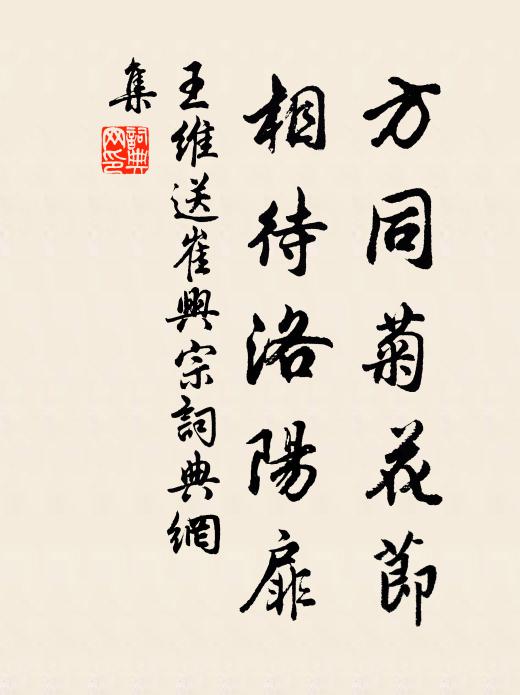 方同菊花節
相待洛陽扉
王維送崔興宗詞典網
集
詞典網印